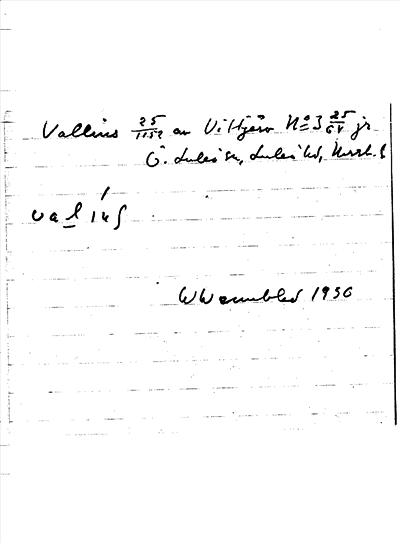 Vallins 25/1152 av Vittjärv No 3 25/64 jr
Ö. Luleå sn, Luleå hd, Norrb. l
valíns
W Wennblad 1930